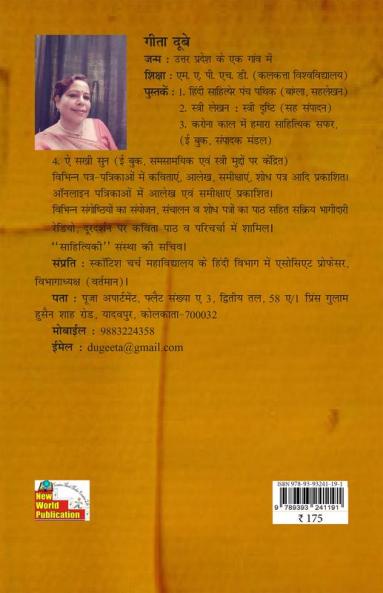 गीता दूबे
जन्म : उत्तर प्रदेश के एक गांव में
शिक्षा : एम. ए, पी. एच. डी. (कलकत्ता विश्वविद्यालय)
पुस्तकें : 1. हिंदी साहित्येर पंच पथिक (बांग्ला, सहलेखन)
2. स्त्री लेखन : स्त्री दृष्टि (सह संपादन)
3. करोना काल में हमारा साहित्यिक सफर,
(ई बुक, संपादक मंडल)
4. ऐ सखी सुन (ई बुक, समसामयिक एवं स्त्री मुद्दों पर केंद्रित)
विभिन्न पत्र-पत्रिकाओं में कविताएं, आलेख, समीक्षाएं, शोध पत्र आदि प्रकाशित।
ऑनलाइन पत्रिकाओं में आलेख एवं समीक्षाएं प्रकाशित।
विभिन्न संगोष्ठियों का संयोजन, संचालन व शोध पत्रों का पाठ सहित सक्रिय भागीदारी
रेडियो, दूरदर्शन पर कविता पाठ व परिचर्चा में शामिल।
"साहित्यिकी" संस्था की सचिव।
संप्रति : स्कॉटिश चर्च महाविद्यालय के हिंदी विभाग में एसोसिएट प्रोफेसर,
विभागाध्यक्ष (वर्तमान)।
पता : पूजा अपार्टमेंट, फ्लैट संख्या ए 3, द्वितीय तल, 58 ए/1 प्रिंस गुलाम
हुसैन शाह रोड, यादवपुर, कोलकाता-700032
मोबाईल : 9883224358
ईमेल : dugeeta@gmail.com
New
World
Publication
ISBN 978-93-93241-19-1
9 789393 241191
₹ 175